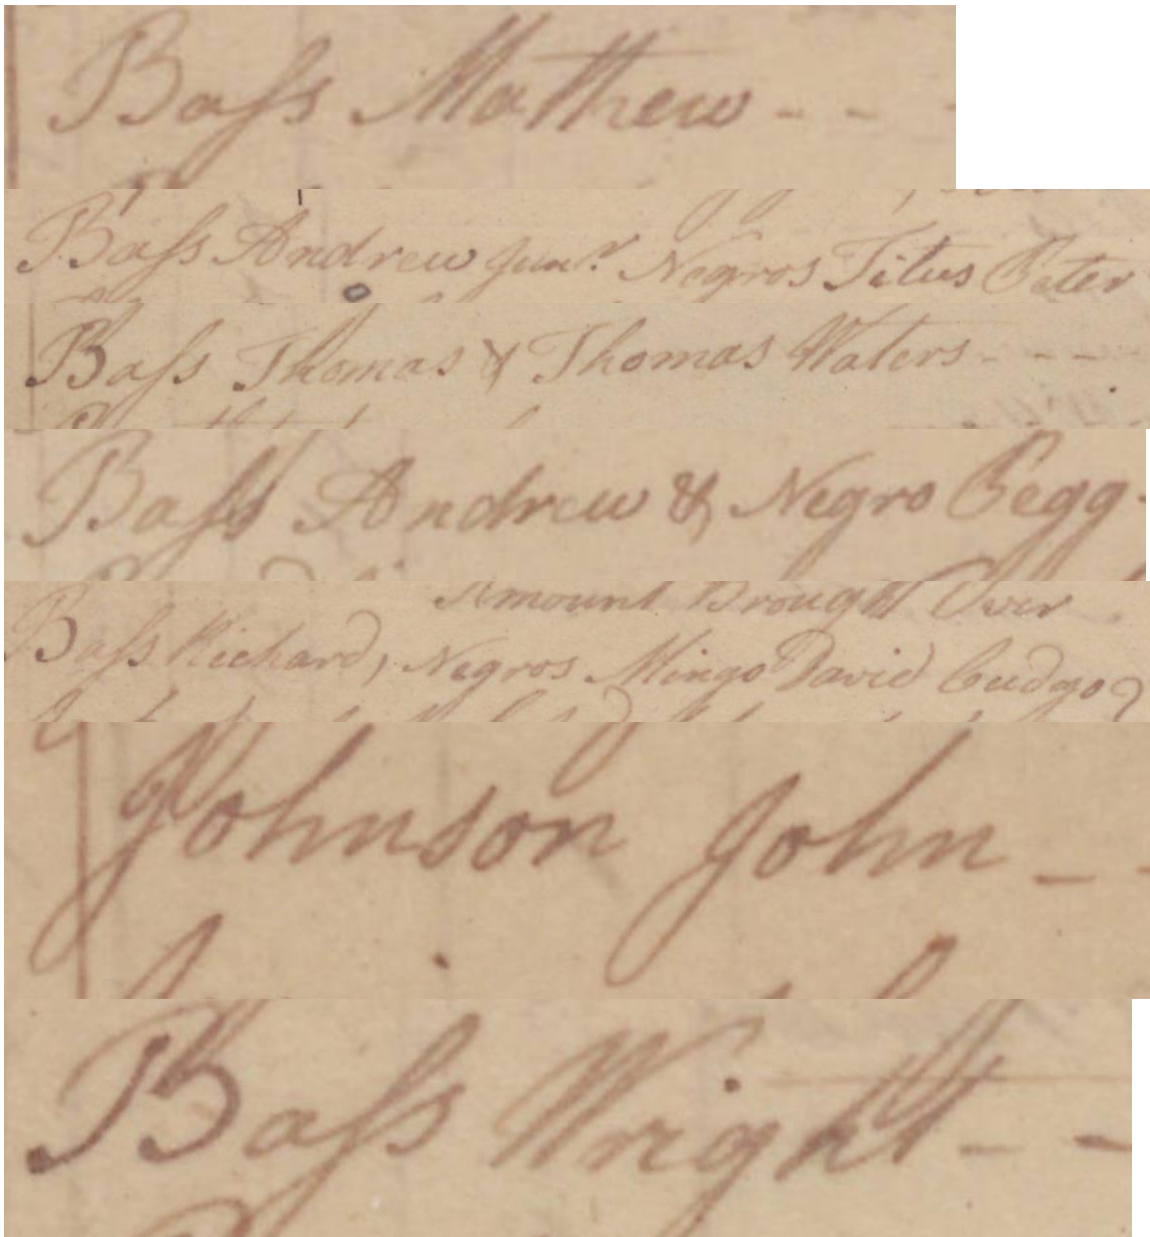 Baſs Mathew - - -
Baſs Andrew Junr. Negros Titus Peter
Baſs Thomas & Thomas Waters - - - -
Baſs Andrew & Negro Pegg -
Amount Brought Over
Baſs Richard, Negros Mingo David Cudgo
Johnson John - -
Baſs Wright - -